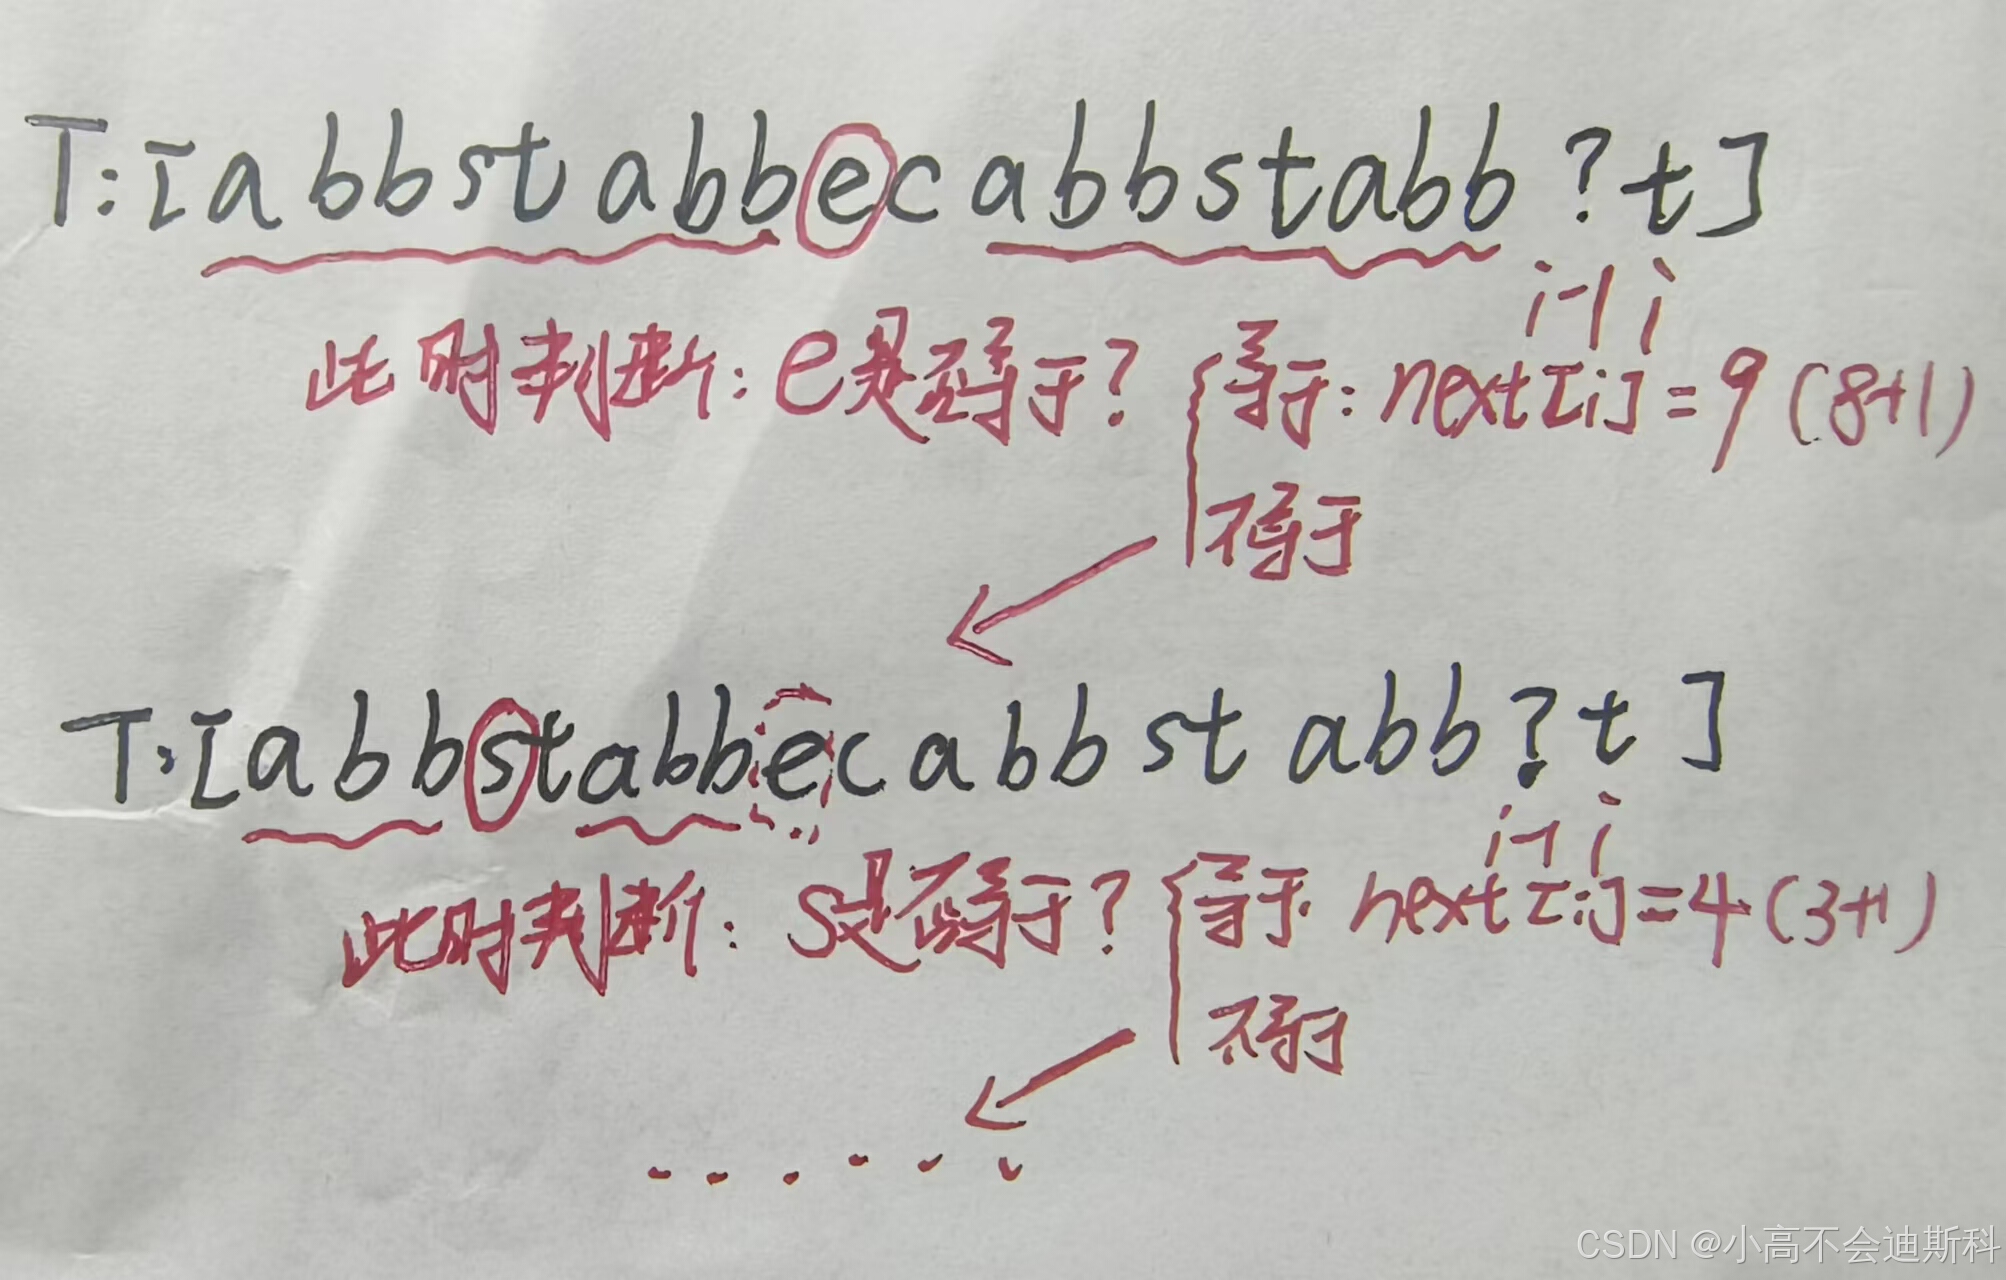 T:[abbstabbecabbstabb?t]
i-1 i
此时判断:e是否等于? 等于:next[i]=9(8+1)
不等于
T:[abbstabbecabbstabb?t]
i-1 i
此时判断:s是否等于? 等于:next[i]=4(3+1)
不等于
......
CSDN @小高不会迪斯科